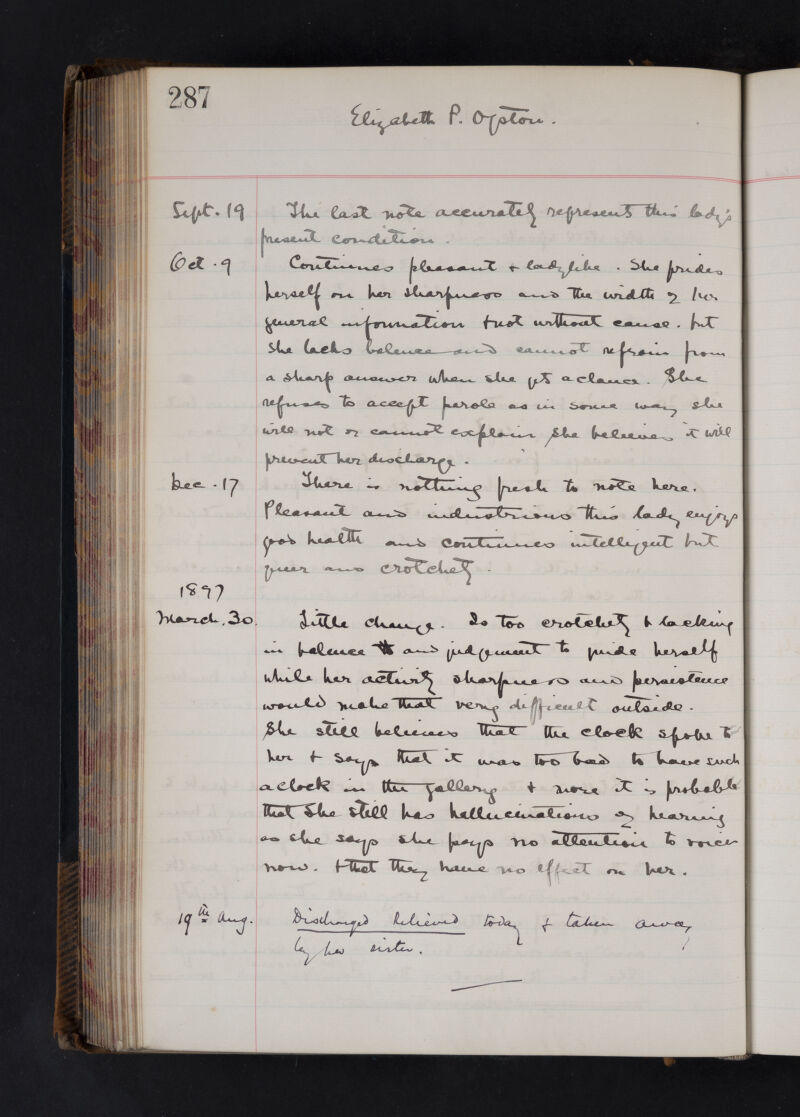 287
Elizabeth P. Ogston.
Sept. 19 The last note accurately represents this lady's
present condition.
Oct. 9 Continues pleasant & ladylike. She prides
herself on her sharpness and the width of her
general information & not without cause. but
she lacks balance and cannot refrain from
a sharp answer when she gets a chance. She
refuses to accept parole as in some way she
will not or cannot explain she believes it will
prevent her discharge.
Dec. 17 There is nothing fresh to note here.
Pleasant and industrious this lady enjoys
good health and continues intelligent but
queer and crotchety.
1897
March. 30. Little change. Is too crotchety & lacking
in balance and judgement to guide herself
while her activity sharpness and persistence
would make that very difficult outside.
She still believes that the clock spoke to
her & says that it was too bad to have such
a clock in the gallery & more it is probable
that she still has hallucinations of hearing
as she says she pays no attention to voices
now. & that they have no effect on her.
19th Aug. Discharged Relieved today & taken away
by her sister.